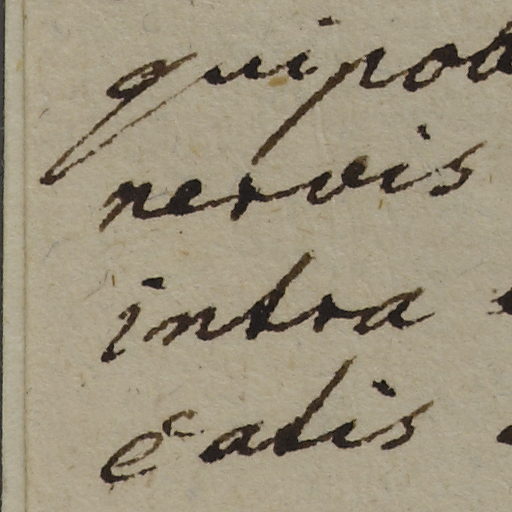 quipoa
nervis
intra
catis